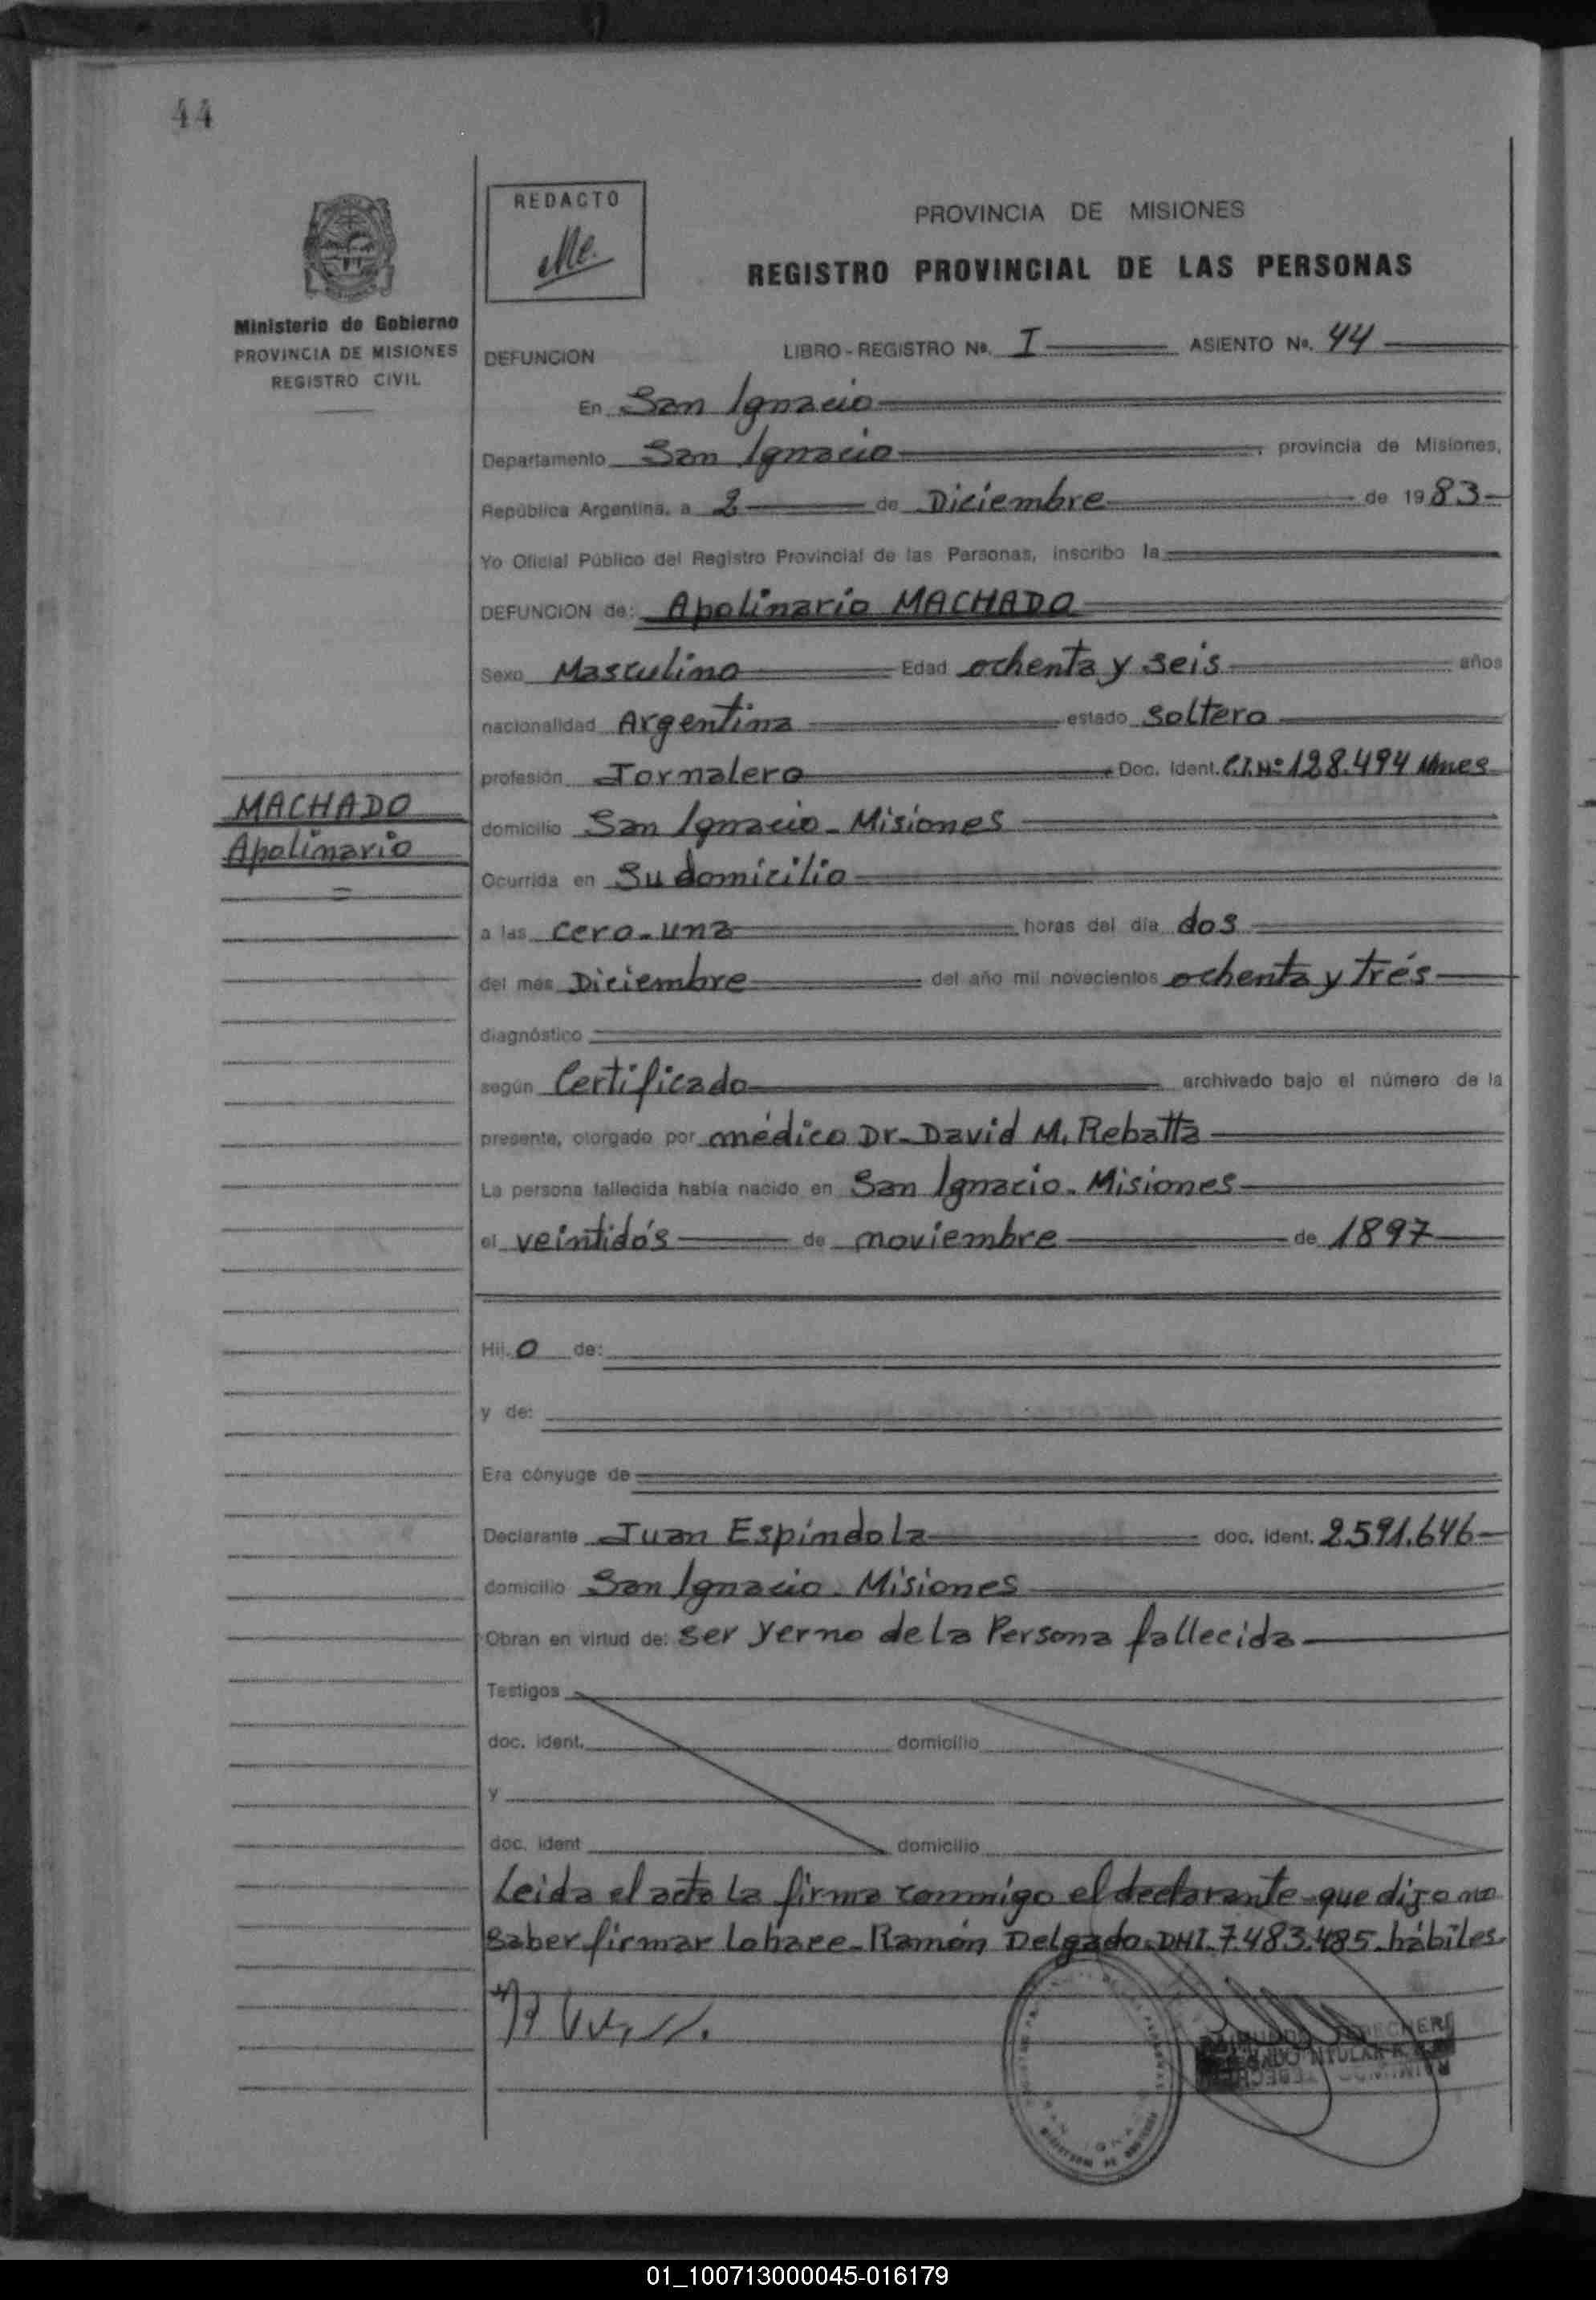 44
REDACTO
Ministerio de Gobierno
PROVINCIA DE MISIONES
REGISTRO CIVIL
PROVINCIA DE MISIONES
REGISTRO PROVINCIAL DE LAS PERSONAS
DEFUNCION LIBRO-REGISTRO Nº. I ASIENTO Nº. 44
En San Ignacio
Departamento San Ignacio, provincia de Misiones,
República Argentina, a 2 de Diciembre de 1983
Yo Oficial Público del Registro Provincial de las Personas, inscribo la
DEFUNCION de: Apolinario MACHADO
Sexo Masculino Edad ochenta y seis años
nacionalidad Argentina estado Soltero
profesión Jornalero Doc. Ident. C.I.Nº 128.494 Mnes
MACHADO
Apolinario
domicilio San Ignacio - Misiones
Ocurrida en Su domicilio
a las cero-una horas del día dos
del mes Diciembre del año mil novecientos ochenta y trés
diagnóstico
según Certificado archivado bajo el número de la
presente, otorgado por médico Dr. David M. Rebatta
La persona fallecida había nacido en San Ignacio. Misiones
el veintidós de noviembre de 1897
Hij o de:
y de:
Era cónyuge de
Declarante Juan Espíndola doc. ident. 2.591.646
domicilio San Ignacio. Misiones
Obran en virtud de: ser yerno de la Persona fallecida
Testigos
doc. ident. domicilio
y
doc. ident domicilio
Leida el acta la firma conmigo el declarante que dijo no
saber firmar lo hace - Ramón Delgado. DNI. 7.483.485. hábiles
01_100713000045-016179